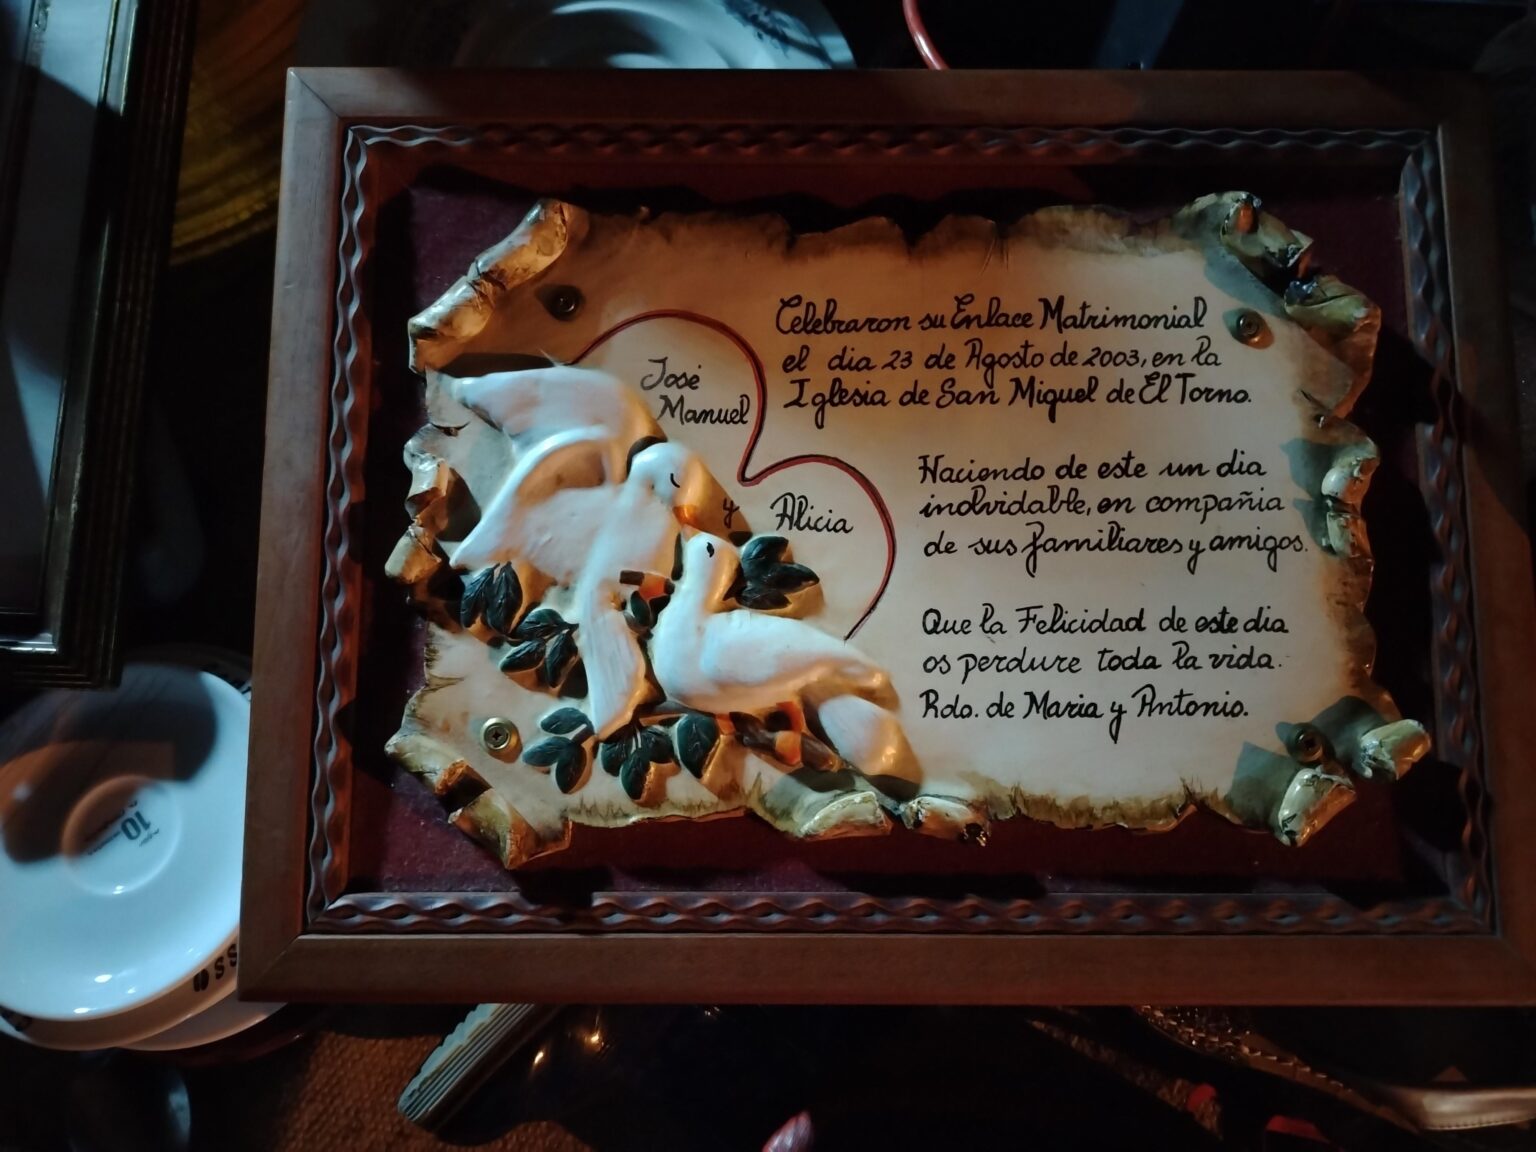 José
Manuel
y Alicia
Celebraron su Enlace Matrimonial
el dia 23 de Agosto de 2003, en la
Iglesia de San Miguel de El Torno.
Haciendo de este un dia
inolvidable, en compañia
de sus familiares y amigos.
Que la Felicidad de este dia
os perdure toda la vida.
Rdo. de Maria y Antonio.
10